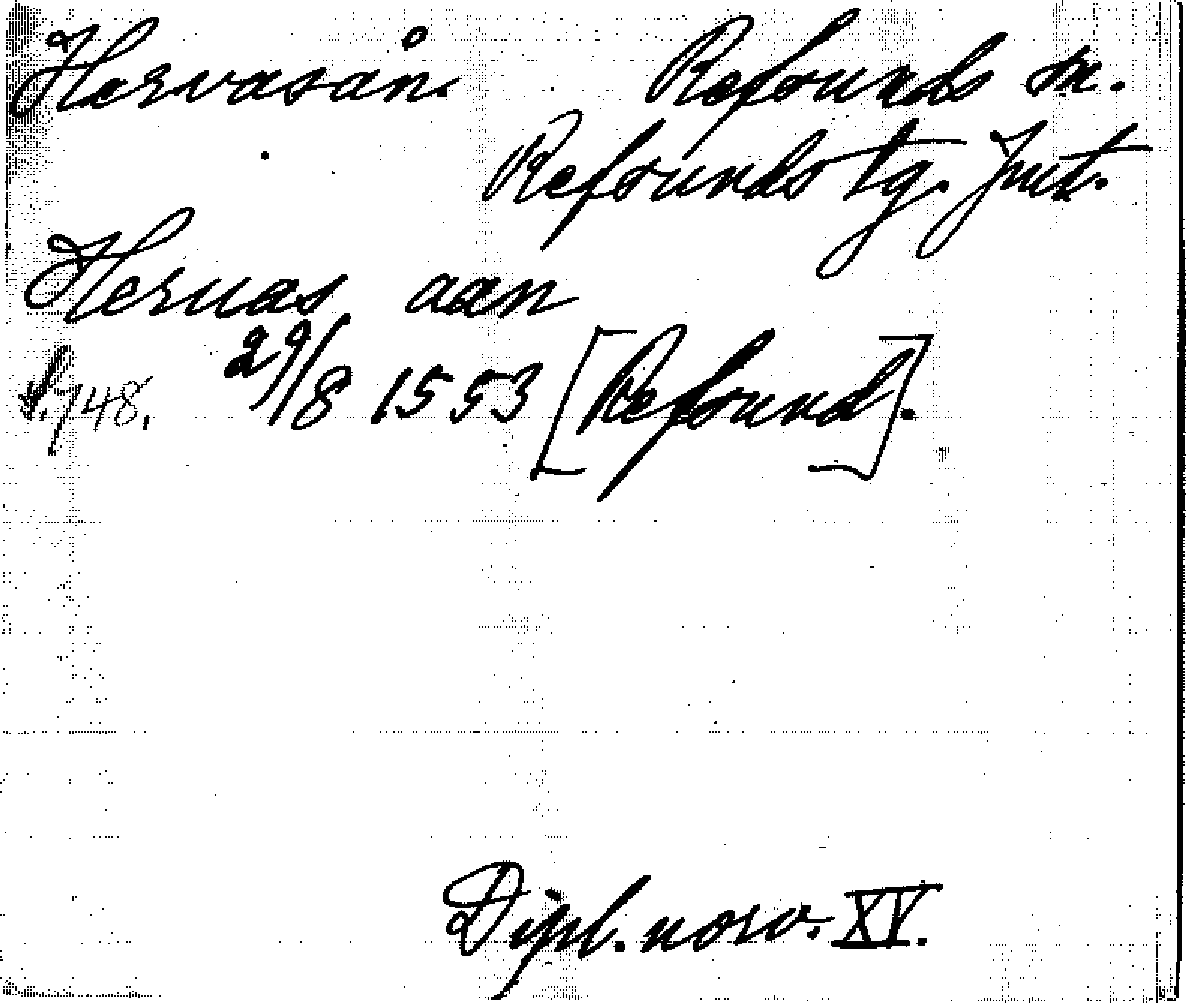 Hervasån. Refsunds sn.
Refsunds tg. Jmt.
Heruas aæn
S. 748. 29/8 1553 [Refsund].
Dipl. norv. XV.